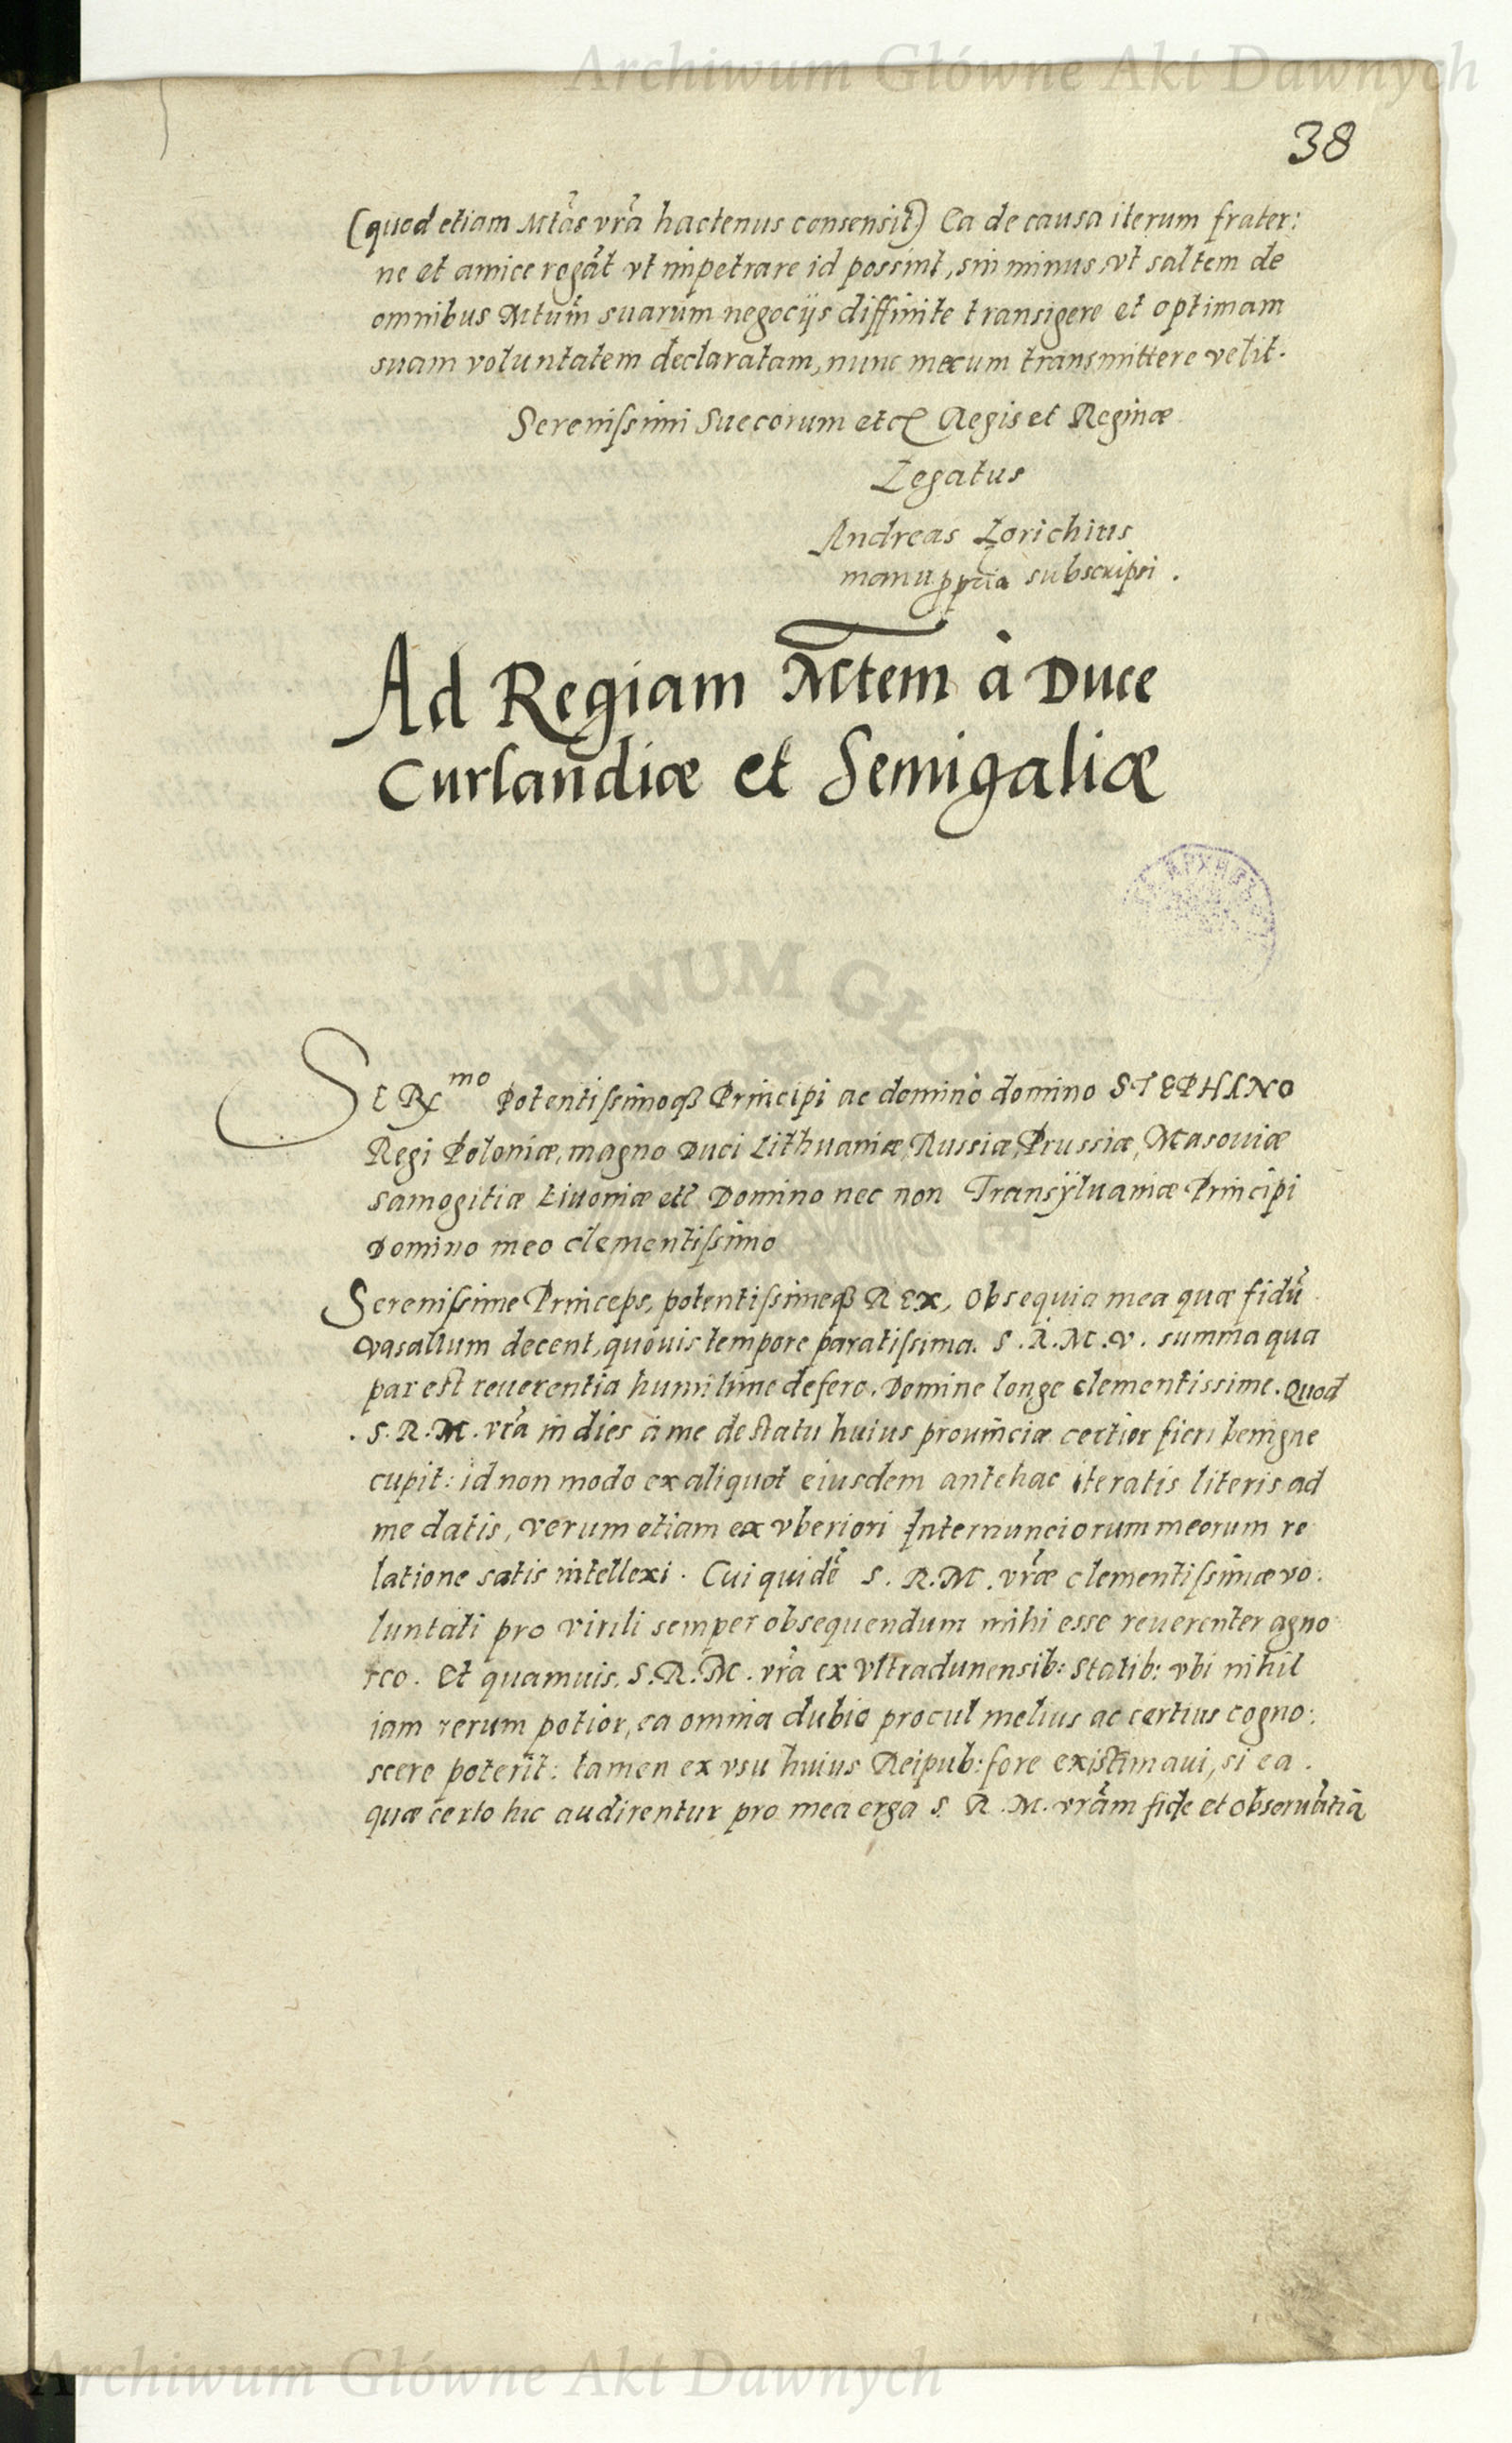 Archiwum Główne Akt Dawnych
38
(quod etiam Mtas vra hactenus consensit) Ea de causa iterum frater:
ne et amice rogāt vt impetrare id possint, sin minus, vt saltem de
omnibus Mtum suarum negocijs diffinite transigere et optimam
suam voluntatem declaratam, nunc mecum transmittere velit.
Serenissimi Suecorum etc Regis et Reginæ
Legatus
Andreas Lorichius
manu ppria subscripsi.
Ad Regiam Mtem â Duce
Curlandiæ et Semigaliæ
SERmo Potentissimoq3 Principi ac domino domino STEPHANO
Regi Poloniæ, magno Duci Lithuaniæ, Russiæ, Prussiæ, Masouiæ
Samogitiæ Liuoniæ etc Domino nec non Transÿluaniæ Principi
Domino meo clementissimo
Serenissime Princeps, potentissimeq3 REX, Obsequia mea quæ fidū
vasallum decent, quouis tempore paratissima. S. R. M. V. summa qua
par est reuerentia humilime defero. Domine longe clementissime. Quod
. S. R. M. vra in dies à me de statu huius prouinciæ certior fieri benigne
cupit: id non modo ex aliquot eiusdem antehac iteratis literis ad
me datis, verum etiam ex vberiori Internunciorum meorum re
latione satis intellexi. Cui quidē S. R. M. vræ clementissimæ vo:
luntati pro virili semper obsequendum mihi esse reuerenter agno
sco. Et quamuis. S. R. M. vra ex Vltradunensib: Statib: vbi nihil
iam rerum potior, ea omnia dubio procul melius ac certius cogno:
scere poterit: tamen ex vsu huius Reipub: fore existimaui, si ea.
quæ certo hic audirentur pro mea erga S. R. M. vram fide et obseruātiā
Archiwum Główne Akt Dawnych